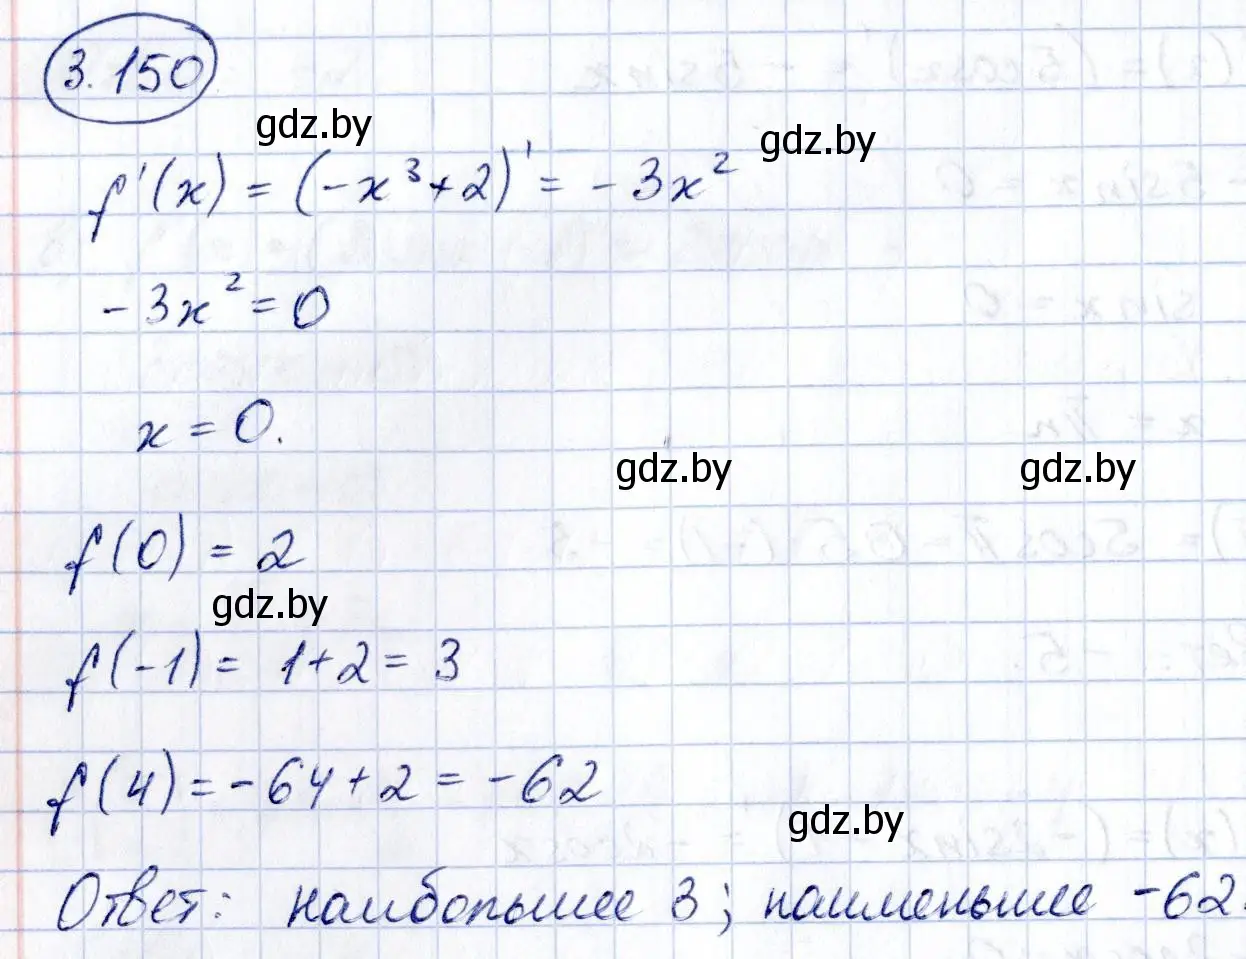 3.150
gdz.by
gdz.by
f'(x) = (-x³+2)' = -3x²
-3x² = 0
x = 0.
gdz.by gdz.by
f(0) = 2
gdz.by
f(-1) = 1+2 = 3
f(4) = -64+2 = -62
gdz.by
Ответ: наибольшее 3; наименьшее -62.